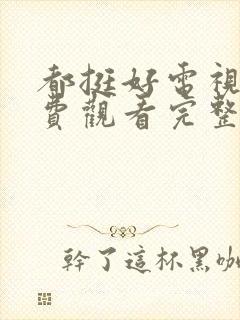 都挺好電視
費觀看完整
幹了這杯黑咖